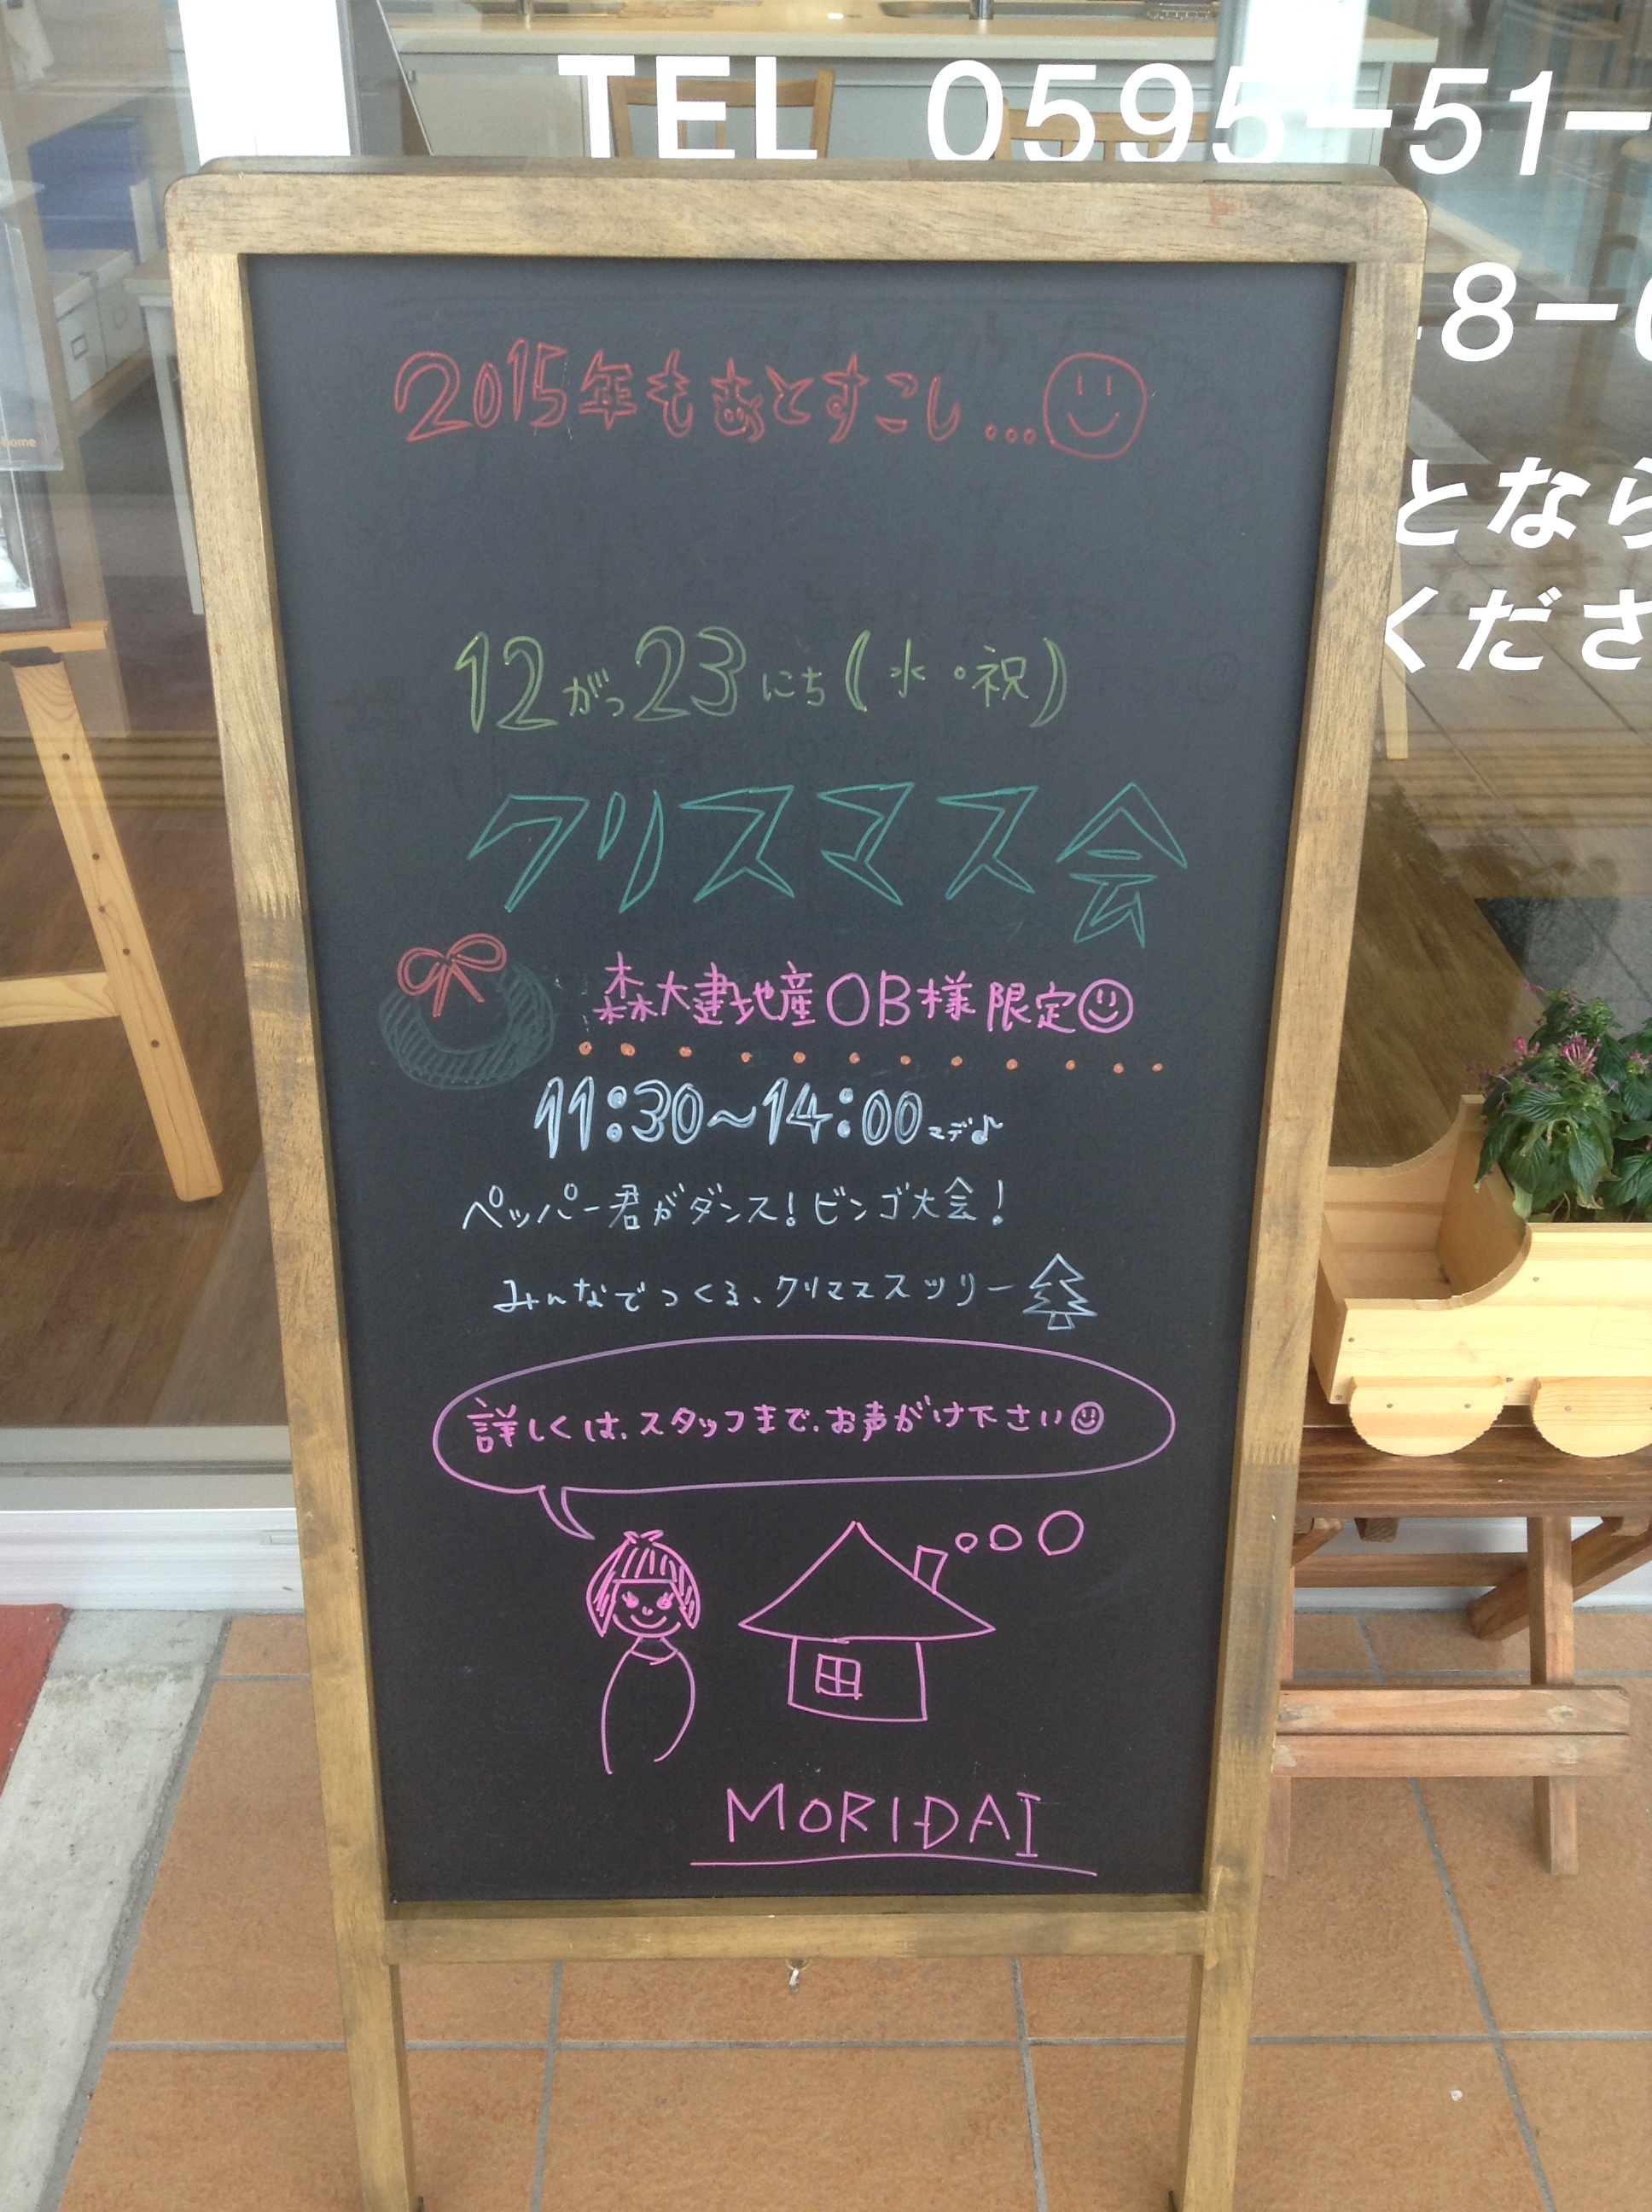 TEL 0595-51-
8-
となら
くださ
home
2015年もあとすこし...
12がつ23にち(水・祝)
クリスマス会
森大建地産OB様限定
11:30~14:00マデ♪
ペッパー君がダンス!ビンゴ大会!
みんなでつくる、クリマススツリー
詳しくは、スタッフまで、お声がけ下さい
MORIDAI